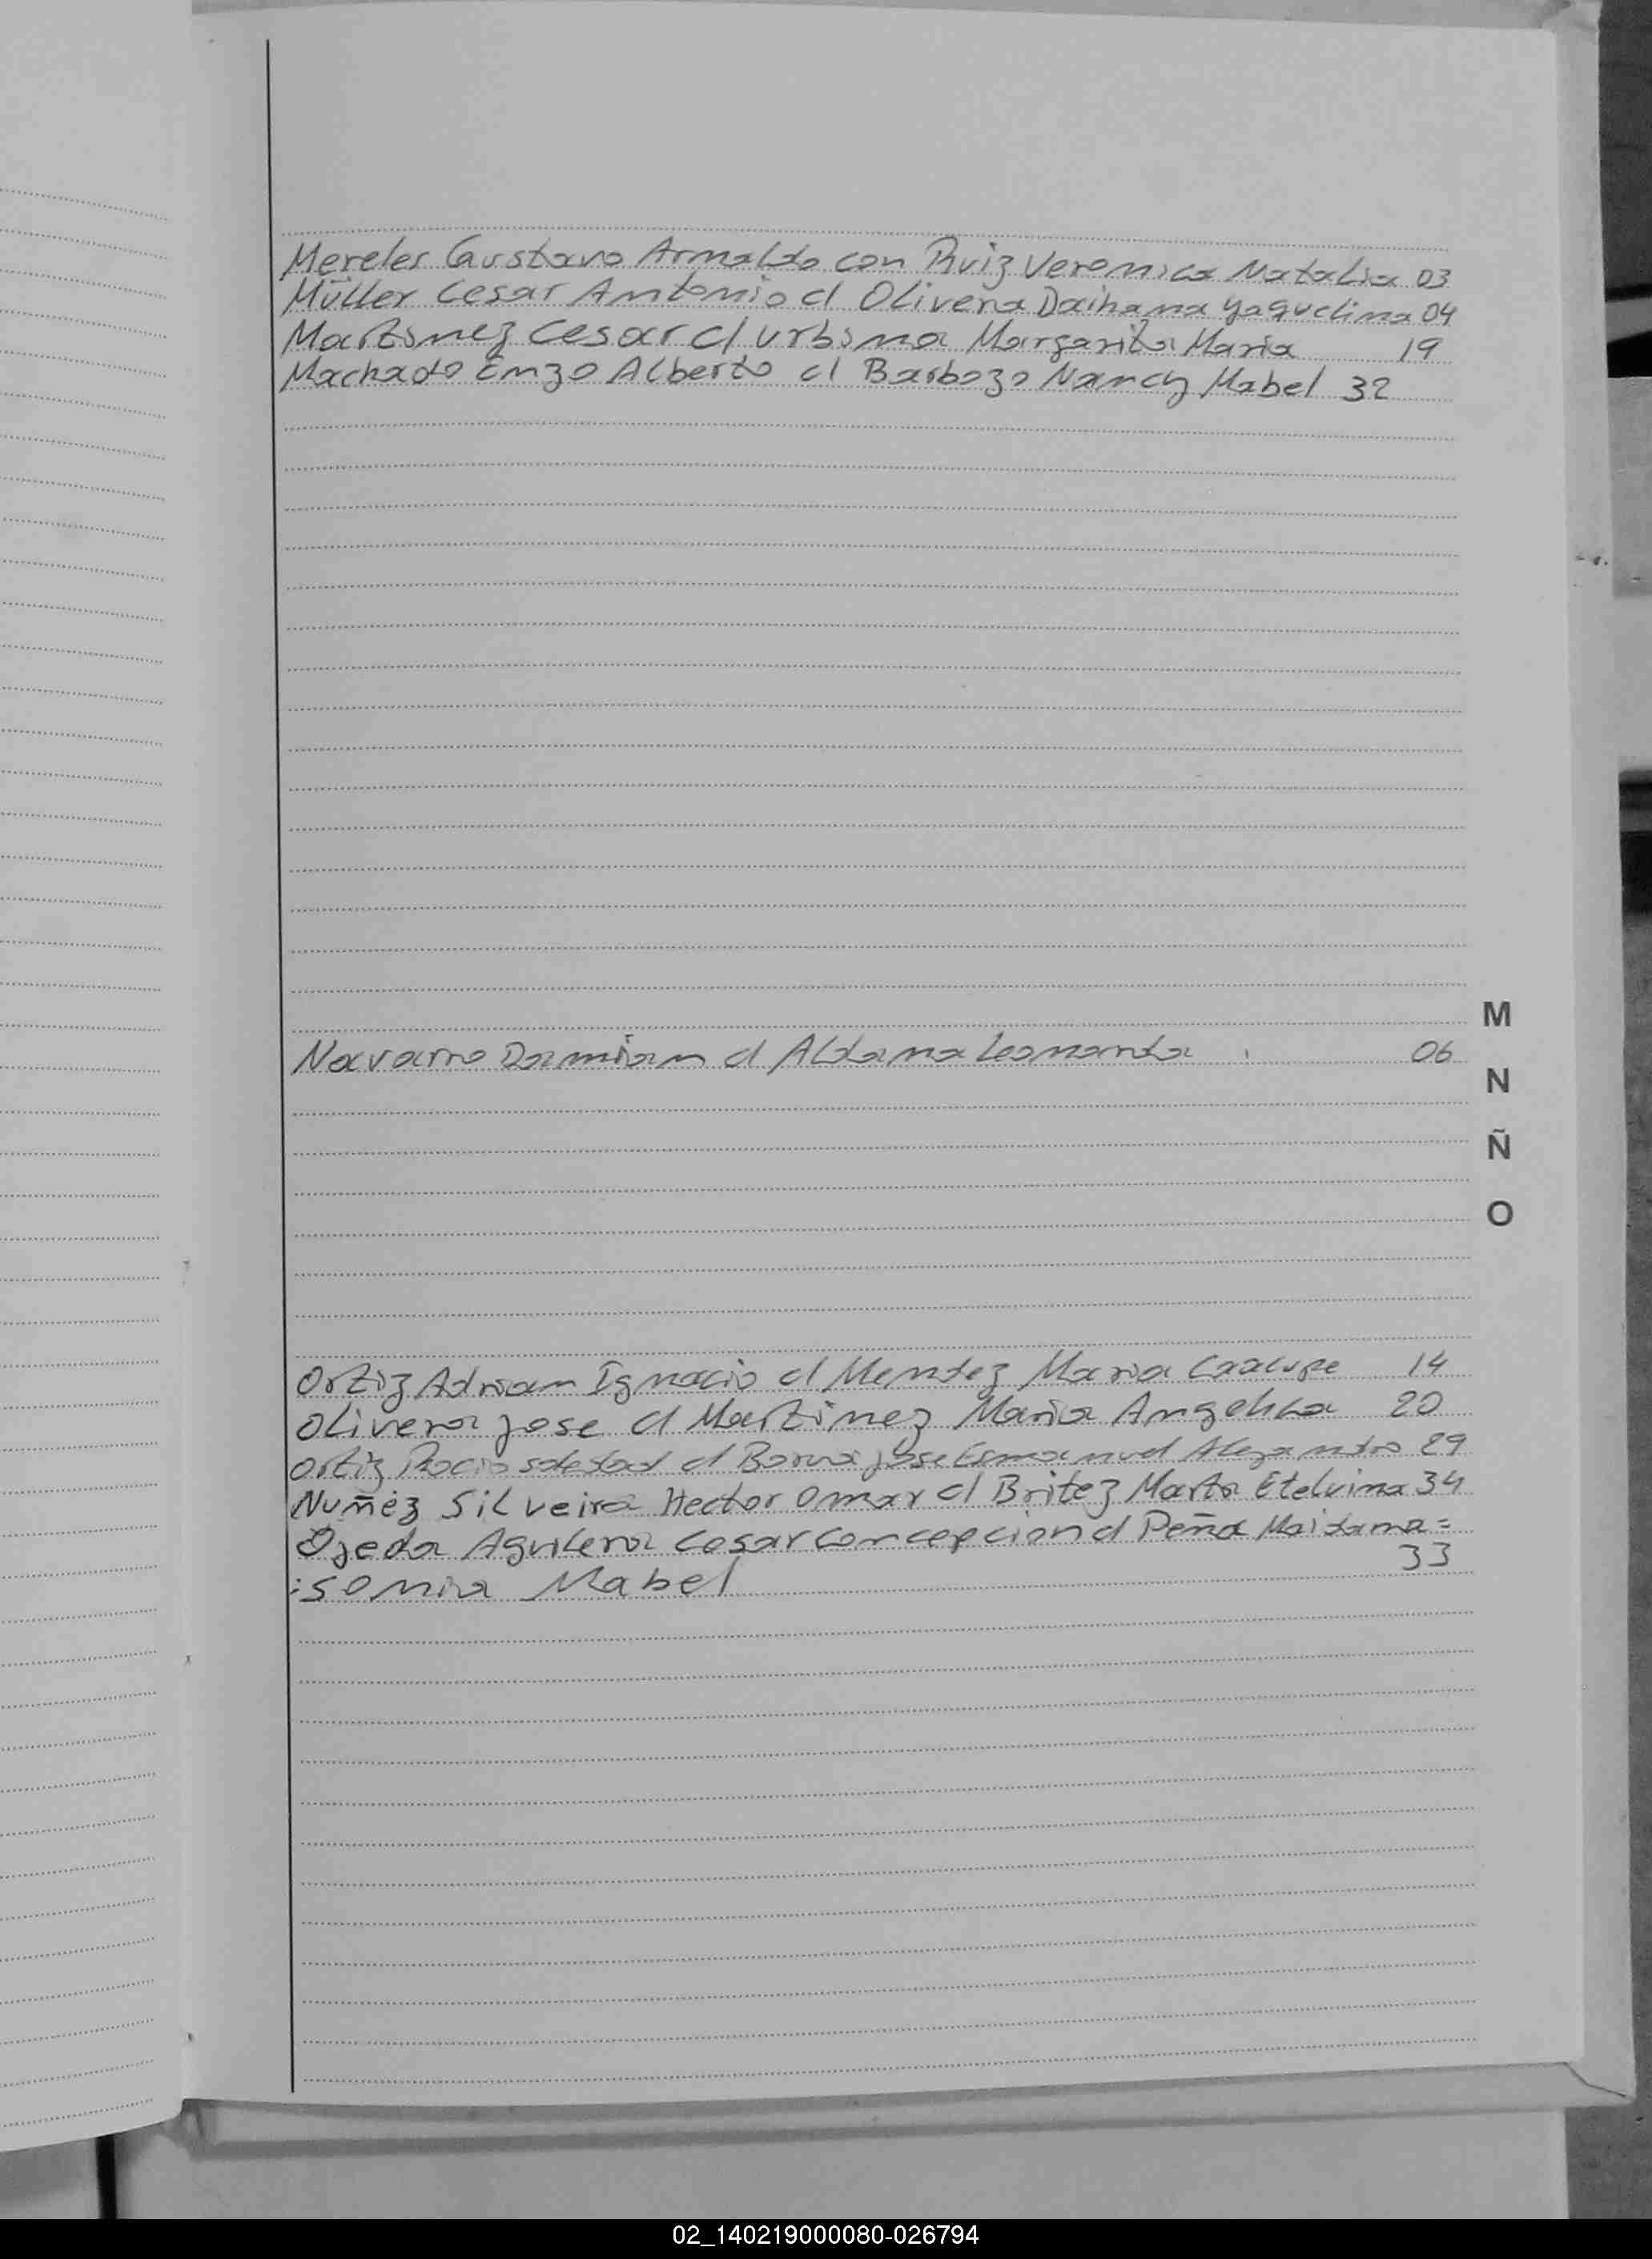 Mereles Gustavo Arnaldo con Ruiz Veronica Natalia 03
Müller Cesar Antonio c/ Olivera Daihana Yaquelina 04
Martinez Cesar c/ Urbina Margarita Maria 19
Machado Enzo Alberto c/ Barbozo Nancy Mabel 32
Navarro Damian c/ Aldana Leonarda 06
M
N
Ñ
O
Ortiz Adrian Ignacio c/ Mendez Maria 14
Olivera Jose c/ Martinez Maria Angelica 20
Ortiz Rocio Soledad c/ Jose Emanuel Alejandro 29
Nuñez Silveira Hector Omar c/ Britez Marta Etelvina 34
Ojeda Aguilera Cesar Concepcion c/ Peña Maidana=
33
:Sonia Mabel
02_140219000080-026794